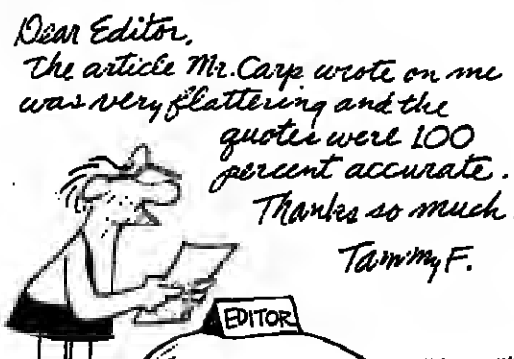 Dear Editor,
The article Mr. Carp wrote on me
was very flattering and the
quotes were 100
percent accurate.
Thanks so much.
Tammy F.
EDITOR